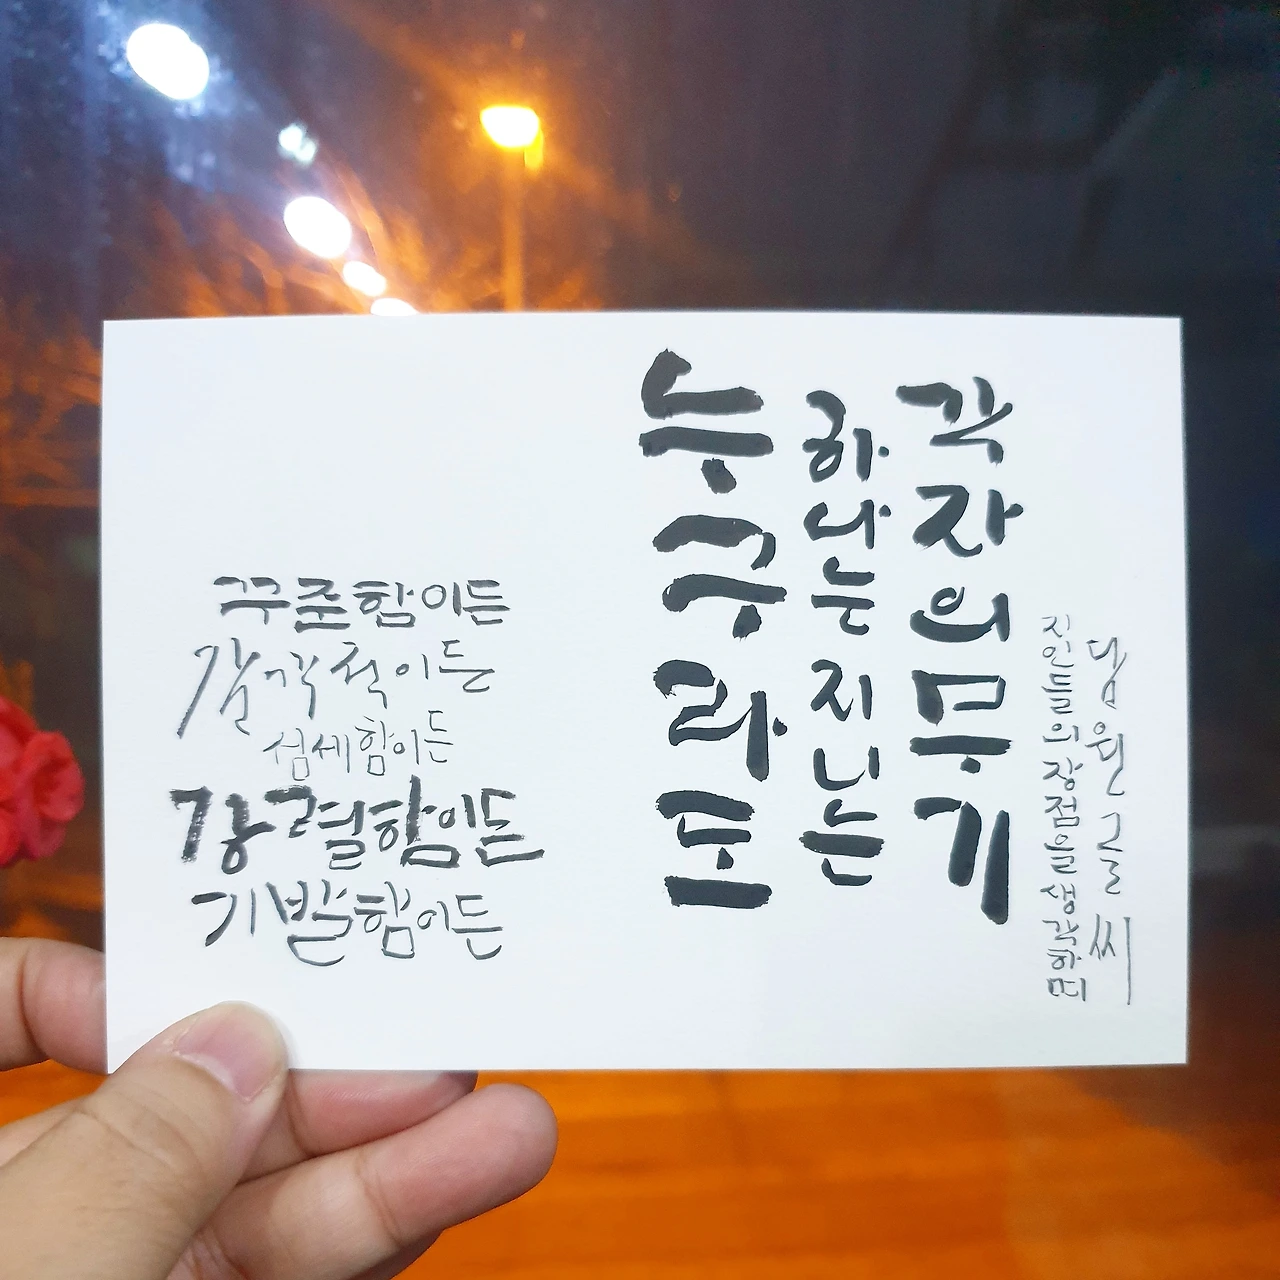 꾸준함이든
감각적이든
섬세함이든
강렬함이든
기발함이든
누구라도
하나는 지니는
각자의 무기
지인들의 장점을 생각하며
담원글씨